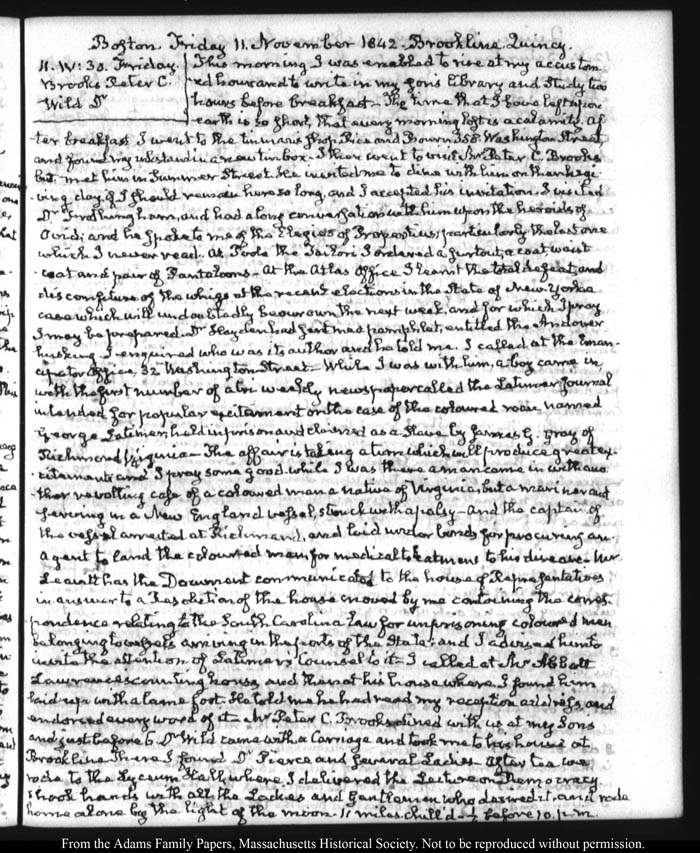 Boston Friday 11. November 1842. Brookline. Quincy.
11. IV: 30. Friday.
Brooks Peter C.
Wild Dr
This morning I was enabled to rise at my accustom-
ed hour and to write in my Son's Library and Study two
hours before breakfast. The time that I have left upon
earth is so short, that every morning lost is a calamity. Af-
ter breakfast I went to the tinman's shop, Rice and Bowen 358. Washington Street,
and found my inkstand in a new tin box. I then went to visit Mr Peter C. Brooks
but met him in Summer Street. He invited me to dine with him on thanksgi-
ving day, if I should remain here so long, and I accepted his invitation. I visited
Dr Frothingham, and had a long conversation with him upon the heroids of
Ovid; and he spoke to me of the Elegies of Propertius, particularly the last one
which I never read. At Poole the Tailor's I ordered a surtout, a coat, waist
coat and pair of Pantaloons. At the Atlas Office I learnt the total defeat, and
discomfiture of the whigs at the recent elections in the State of New-York a
case which will undoubtedly be our own the next week, and for which I pray
I may be prepared. Dr Hayden had sent me a pamphlet, entitled the Andover
husking. I enquired who was its author and he told me. I called at the Eman-
cipator Office, 32 Washington Street. While I was with him, a boy came in,
with the first number of a tri weekly newspaper called the Latimer Journal
intended for popular excitement on the case of the coloured man named
George Latimer, held in prison and claimed as a slave by James G. Gray of
Richmond Virginia. The affair is taking a turn which will produce great ex-
citement and I pray some good. While I was there a man came in with ano-
ther revolting case of a coloured man a native of Virginia, but a mariner and
serving in a New England vessel, struck with a palsy and the captain of
the vessel arrested at Richmond, and laid under bonds for procuring an
agent to land the coloured man for medical treatment to his disease. Mr
Leavitt has the Document communicated to the house of Representatives
in answer to a Resolution of the house moved by me containing the corres-
pondence relating to the South Carolina Law for imprisoning coloured men
belonging to vessels arriving in the ports of the State; and I advised him to
invite the attention of Latimer's Counsel to it. I called at Mr Abbott
Lawrence's counting house, and then at his house where I found him
laid up with a lame foot. He told me he had read my reception address, and
endorsed every word of it. Mr Peter C. Brooks dined with us at my Sons
and just before 6 Dr Wild came with a Carriage and took me to his house at
Brookline. There I found Dr Pierce and several Ladies. After tea we
rode to the Lyceum Hall, where I delivered the Lecture on Democracy.
Shook hands with all the Ladies and Gentlemen who desired it, and rode
home alone by the light of the moon. 11 miles, chill'd. ½ before 10. p.m.
From the Adams Family Papers, Massachusetts Historical Society. Not to be reproduced without permission.